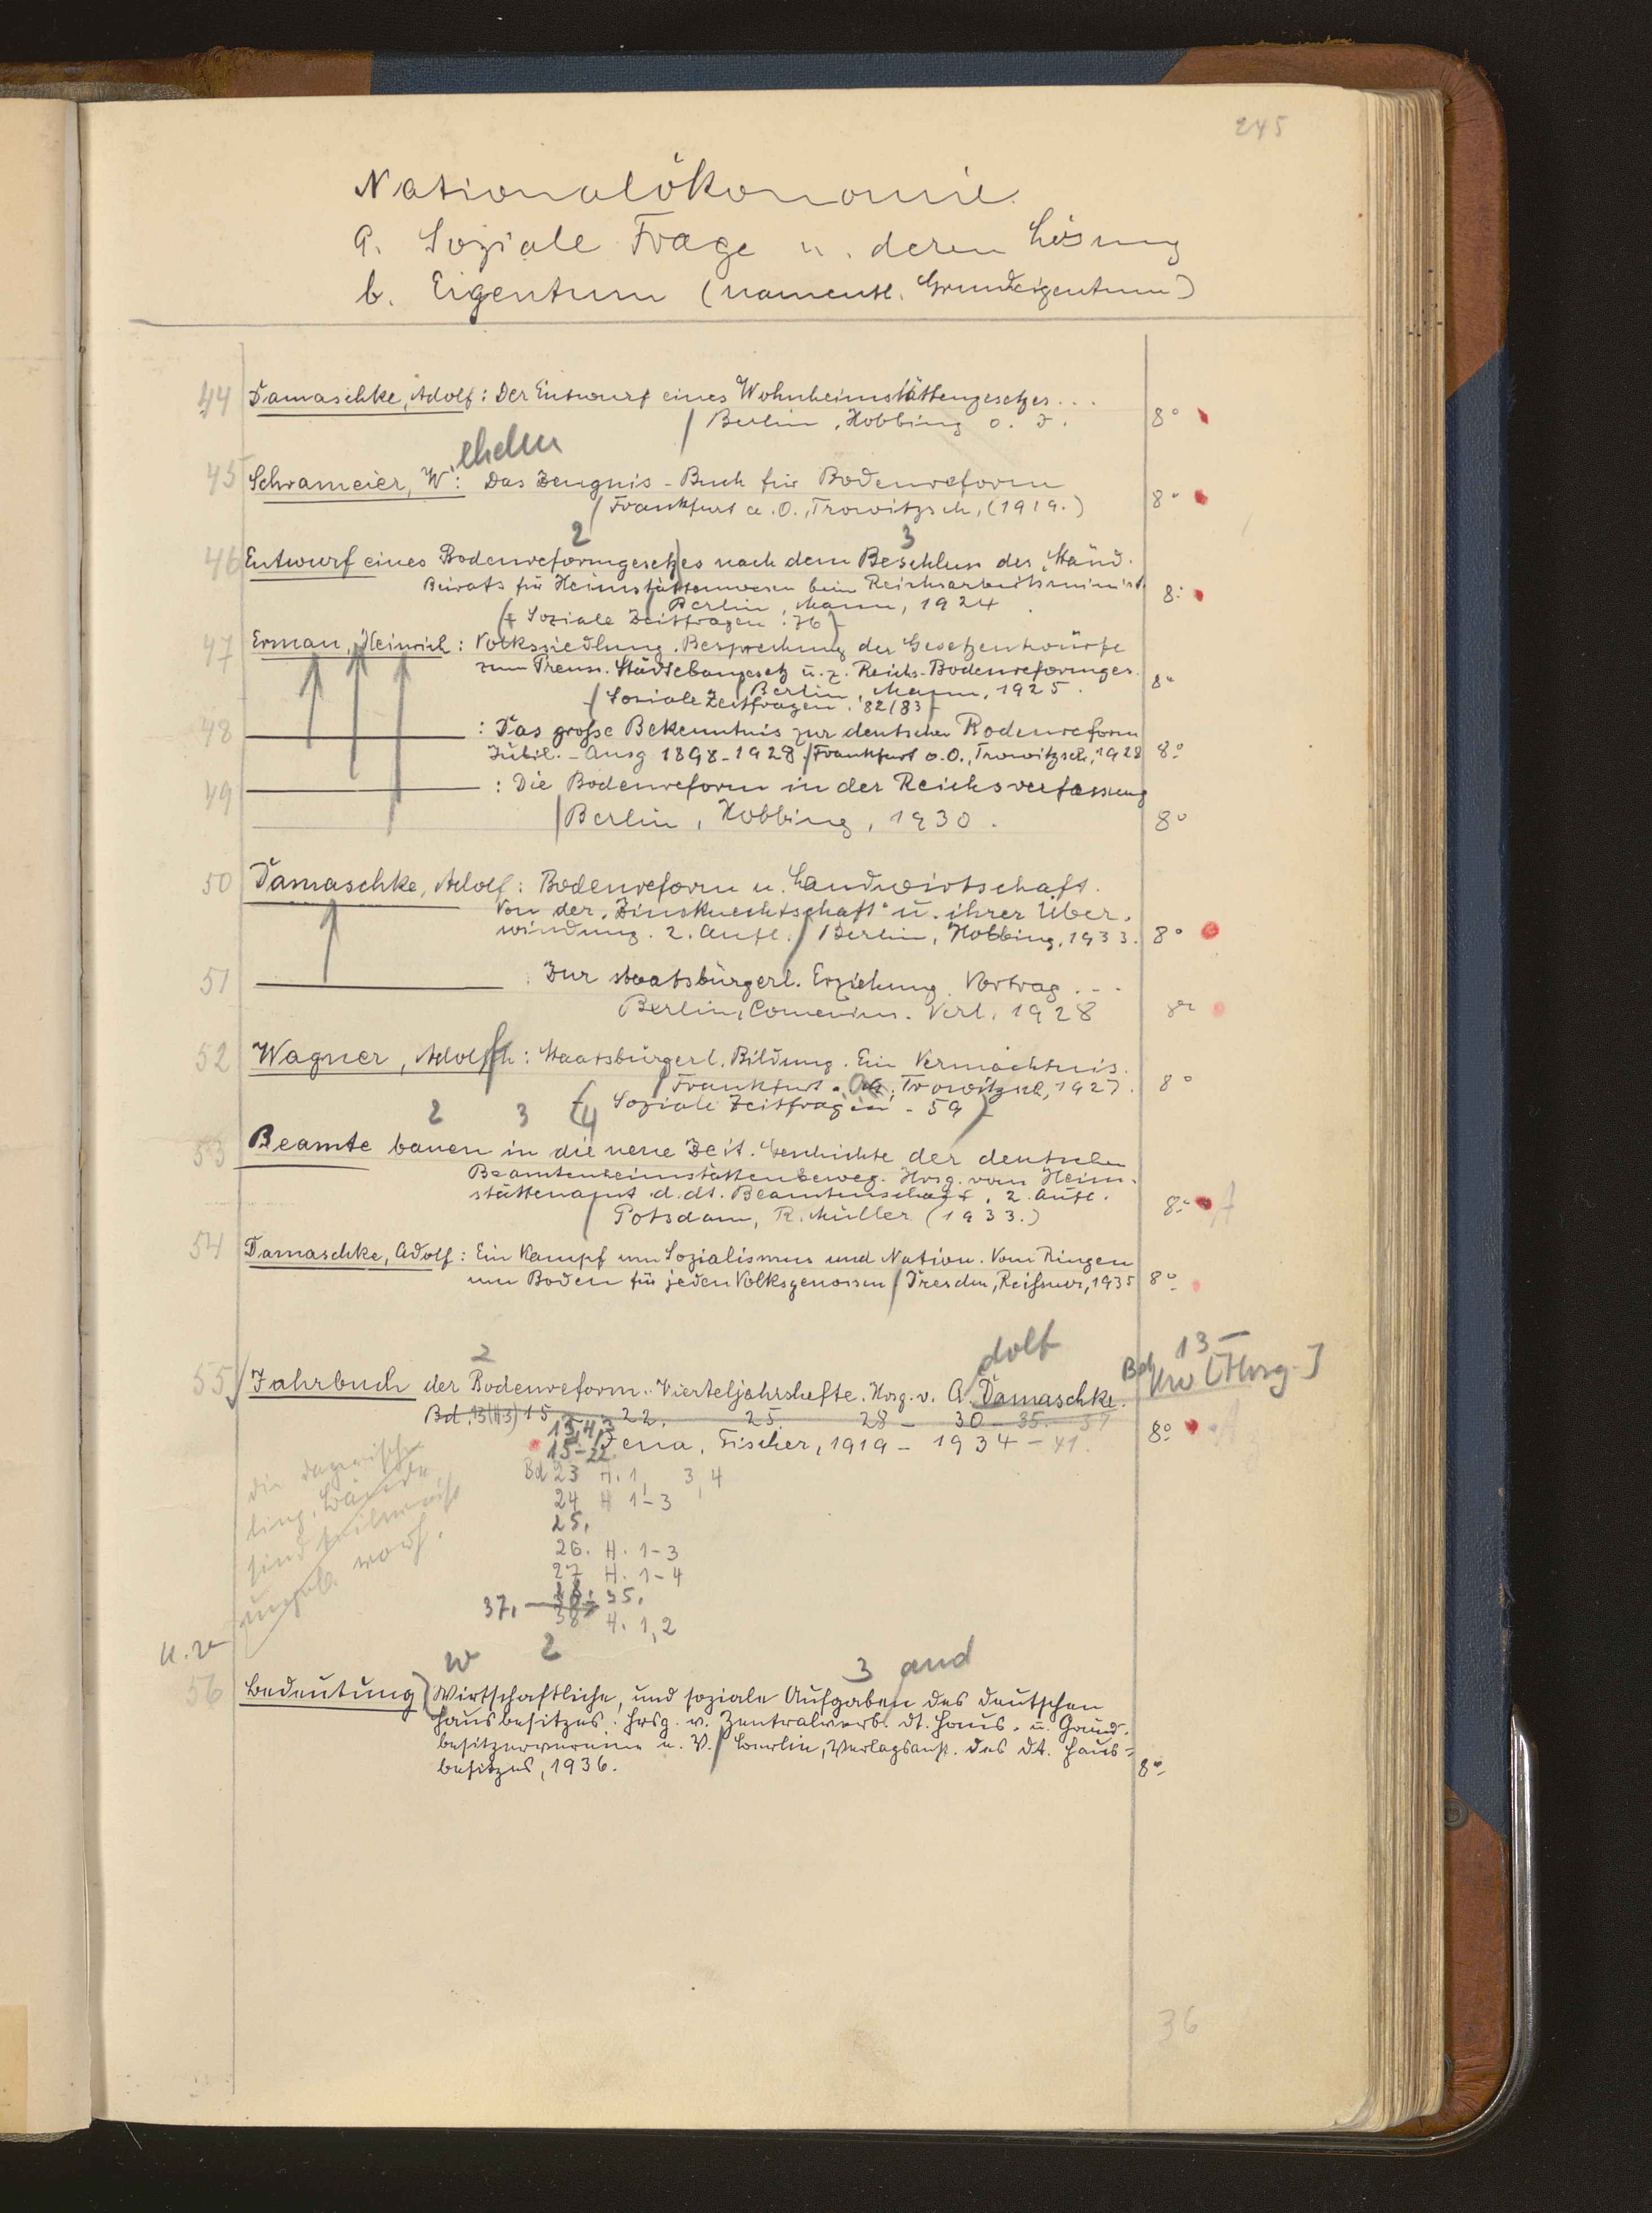 245
Nationalökonomie.
a. Soziale Frage u. deren Lösung
b. Eigentum (namentl. Grundeigentum)
44 Damaschke, Adolf: Der Entwurf eines Wohnheimstättengesetzes...
/ Berlin, Hobbing o. J. 8°
ehelm
45 Schrameier, W: Das Zeugnis-Buch für Bodenreform
/ Frankfurt a. O., Trowitzsch, (1919.) 8°
2 3
46 Entwurf eines Bodenreformgesetzes nach dem Beschluss des Ständ.
Beirats für Heimstättenwesen beim Reichsarbeitsminist.
/ Berlin, Mann, 1924. 8°
(Soziale Zeitfragen: 76)
47 Erman, Heinrich: Volkssiedlung. Besprechung der Gesetzentwürfe
zum Preuss. Städtebaugesetz u. z. Reichs-Bodenreformges.
/ Berlin, Mann, 1925. 8°
(Soziale Zeitfragen. 82/83)
48 ——— : Das grosse Bekenntnis zur deutschen Bodenreform
Jubil.-Ausg 1898-1928 / Frankfurt a. O., Trowitzsch, 1928 8°
49 ——— : Die Bodenreform in der Reichsverfassung
/ Berlin, Hobbing, 1930. 8°
50 Damaschke, Adolf: Bodenreform u. Landwirtschaft.
Von der „Zinsknechtschaft“ u. ihrer Über-
windung. 2. Aufl. / Berlin, Hobbing, 1933. 8°
51 ——— : Zur staatsbürgerl. Erziehung. Vortrag...
Berlin, Comenius-Verl. 1928 8°
52 Wagner, Adolph: Staatsbürgerl. Bildung. Ein Vermächtnis.
/ Frankfurt a. O., Trowitzsch, 1927. 8°
(Soziale Zeitfragen - 59)
2 3 4
53 Beamte bauen in die neue Zeit. Geschichte der deutschen
Beamtenheimstättenbeweg. Hrsg. vom Heim-
stättenamt d. dt. Beamtenschaft. 2. Aufl.
/ Potsdam, R. Müller (1933.) 8° A
54 Damaschke, Adolf: Ein Kampf um Sozialismus und Nation. Vom Ringen
um Boden für jeden Volksgenossen / Dresden, Reißner, 1935 8°
2 dolf 13–
55 Jahrbuch der Bodenreform. Vierteljahrshefte. Hrsg. v. A. Damaschke. Bd [Hrsg.]
Bd. 13(H3) 15 22. 25. 28 – 30 – 35. 37
13,H,3
/ Jena, Fischer, 1919 – 1934 – 41. 8° A
15-22.
Bd 23 H. 1, 3, 4
24 H 1-3
25.
26. H. 1-3
27 H. 1-4
28-35.
37,
38 H. 1,2
die dazwisch
lieg. Bände
sind teilweise
ungeb. vorh.
w 2 3 and
56 Bedeutung) Wirtschaftliche, und soziale Aufgaben des deutschen
Hausbesitzes. Hrsg. v. Zentralverb. dt. Haus- u. Grund-
besitzervereine e. V. / Berlin, Verlagsanst. des dt. Haus-
besitzes, 1936. 8°
36